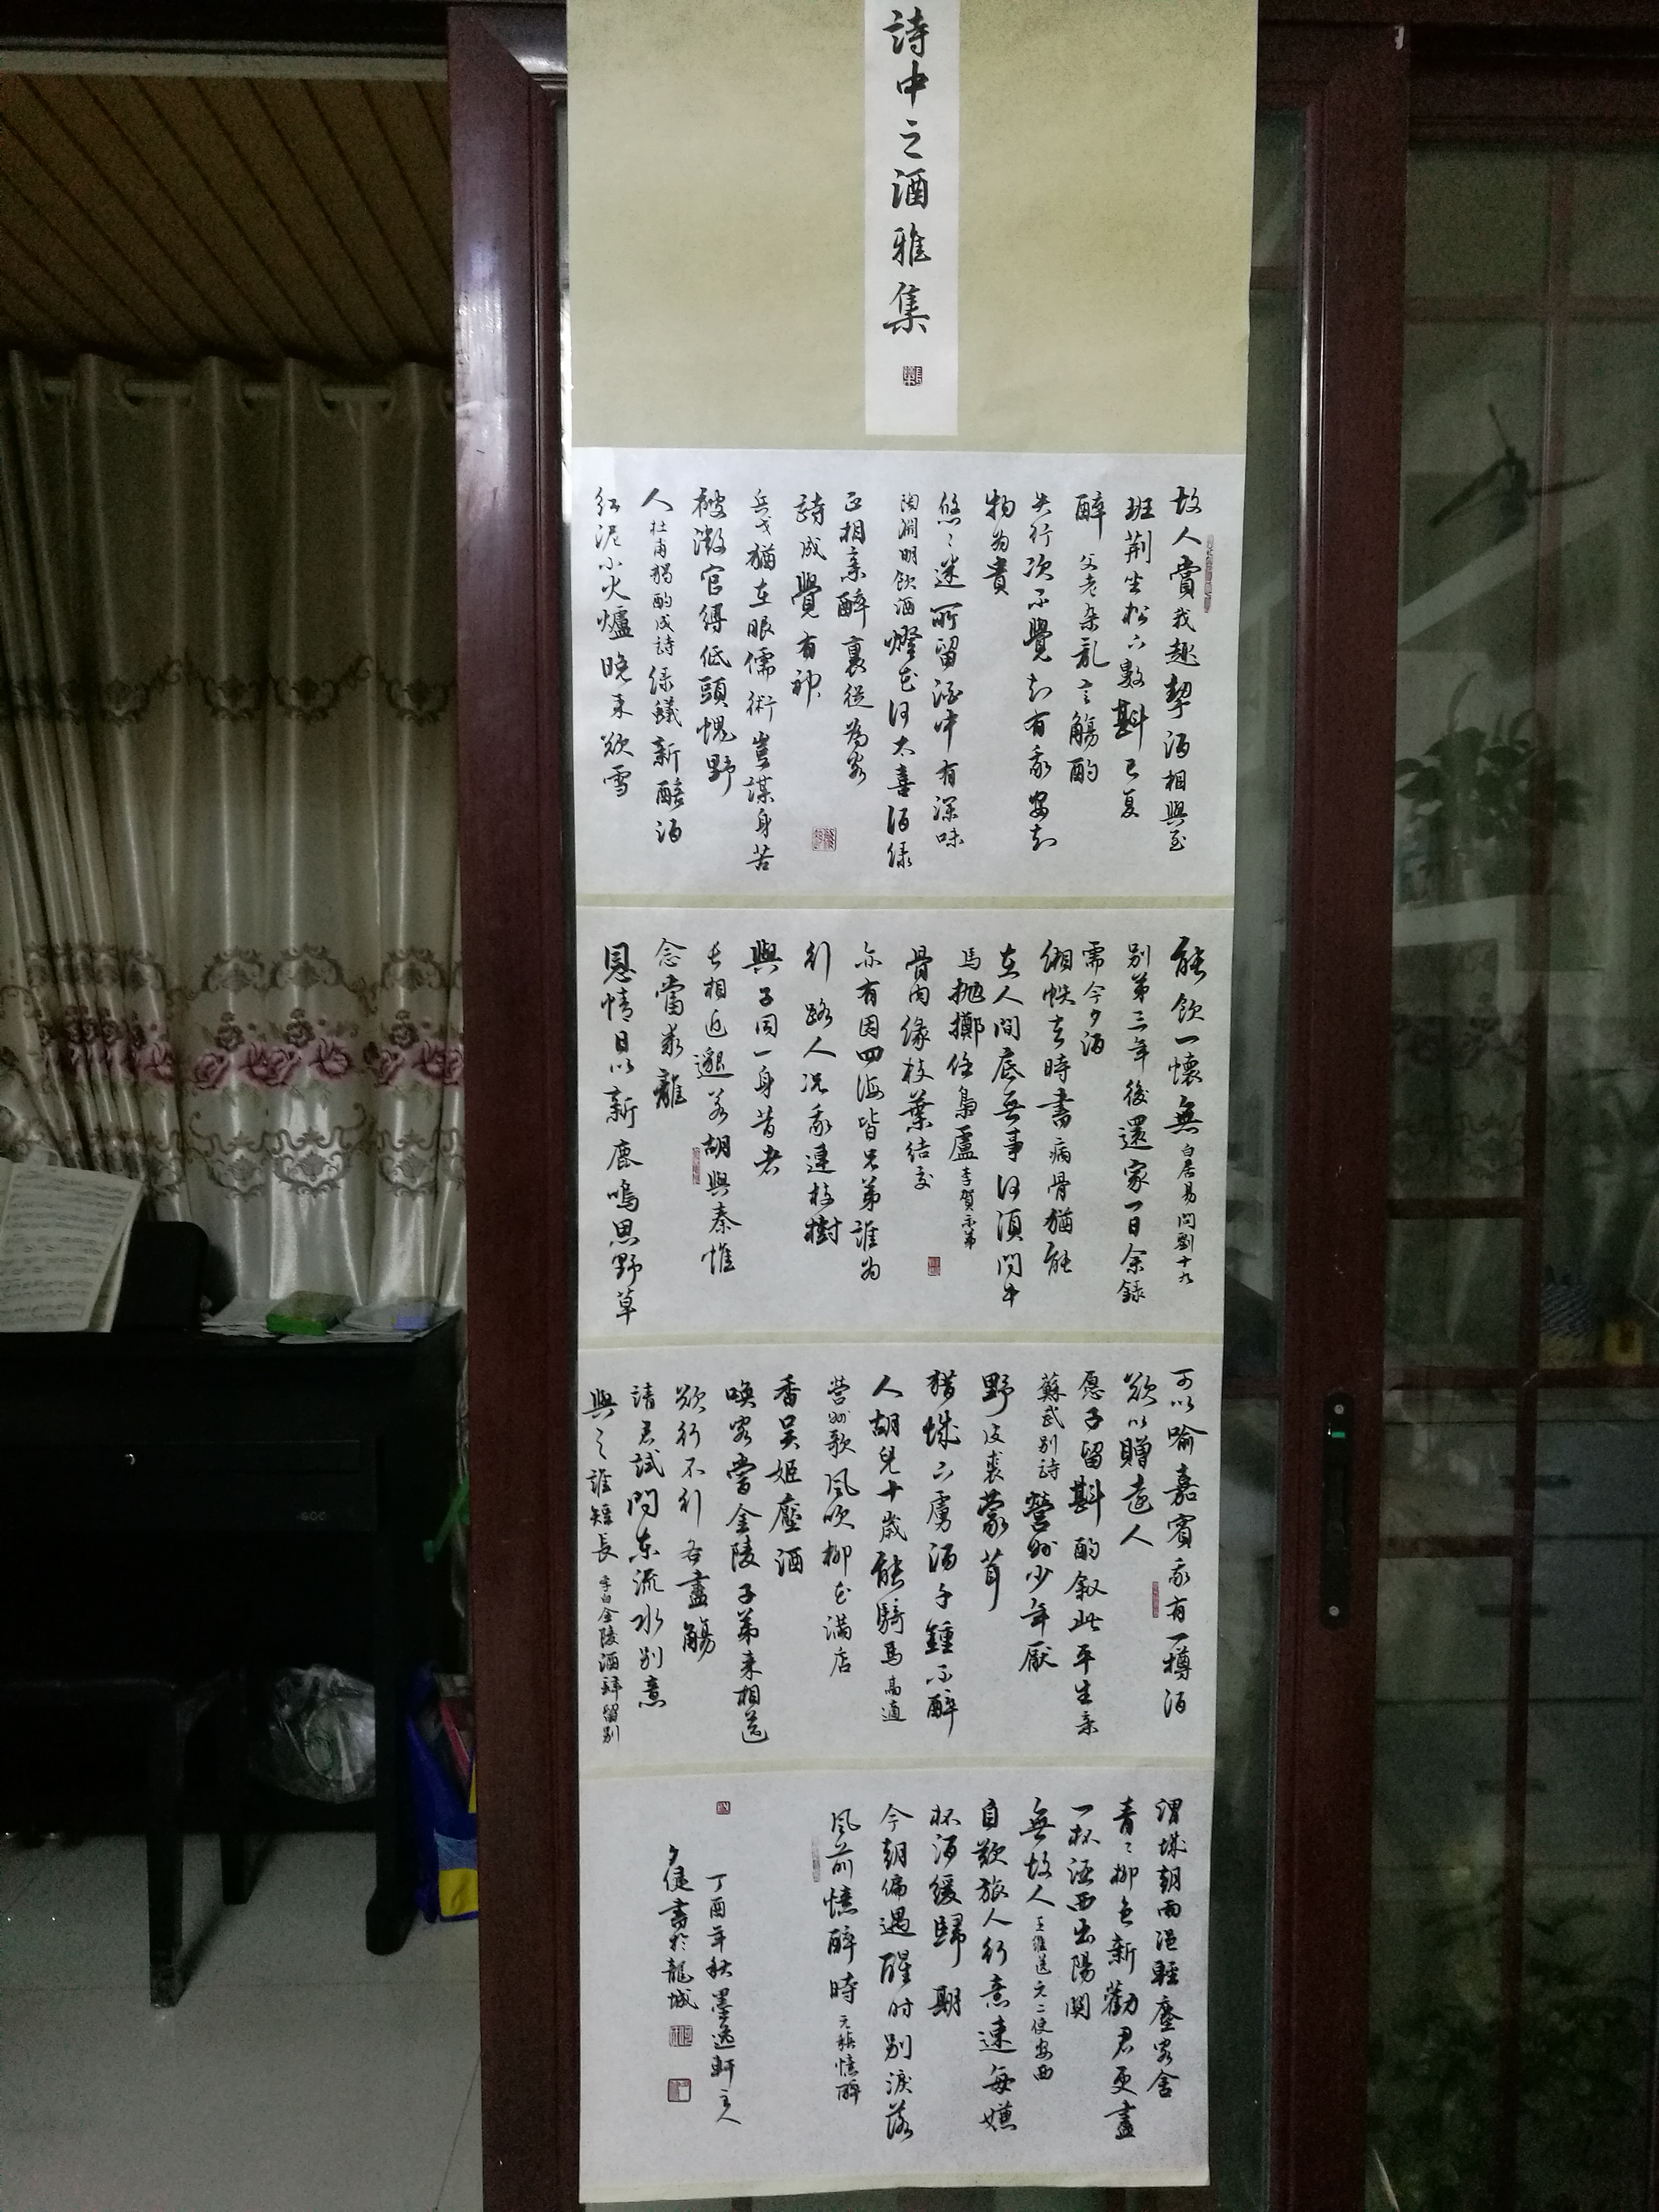 詩中之酒雅集
故人賞我趣挈酒相與至
班荆坐松下數斟已复
醉父老杂乱言觴酌
失行次不覺知有我安知
物为貴
悠々迷所留酒中有深味
陶淵明飲酒燈花何太喜酒绿
正相亲醉裏從為客
詩成覺有神
兵戈猶在眼儒術豈謀身苦
被微官缚低頭愧野
人杜甫獨酌成詩绿蟻新醅酒
红泥小火爐晚来欲雪
能飲一懷無白居易问劉十九
别弟三年後還家一日余録
需今夕酒
缃帙去時書病骨猶能
在人間底無事何須問牛
馬抛擲任梟盧李賀示弟
骨肉缘枝葉结交
亦有因四海皆兄弟誰为
行路人况我連枝樹
與子同一身昔者
长相近邈若胡與秦惟
念當乖離
恩情日以新鹿鳴思野草
可以喻嘉賓我有一樽酒
欲以贈遠人
愿子留斟酌叙此平生亲
蘇武别詩營州少年厭
野皮裘蒙茸
猎城下虜酒千鍾不醉
人胡兒十歲能騎馬高適
营州歌风吹柳花满店
香吴姬壓酒
唤客嘗金陵子弟来相送
欲行不行各盡觴
請君試問东流水别意
與之誰短長李白金陵酒肆留别
渭城朝雨浥輕塵客舍
青々柳色新勸君更盡
一杯酒西出陽関
無故人王维送元二使安西
自歎旅人行意速每嫌
杯酒缓歸期
今朝偏遇醒时别淚落
风前憶醉時元稹憶醉
丁酉年秋墨逸軒主人
夕健書於龍城